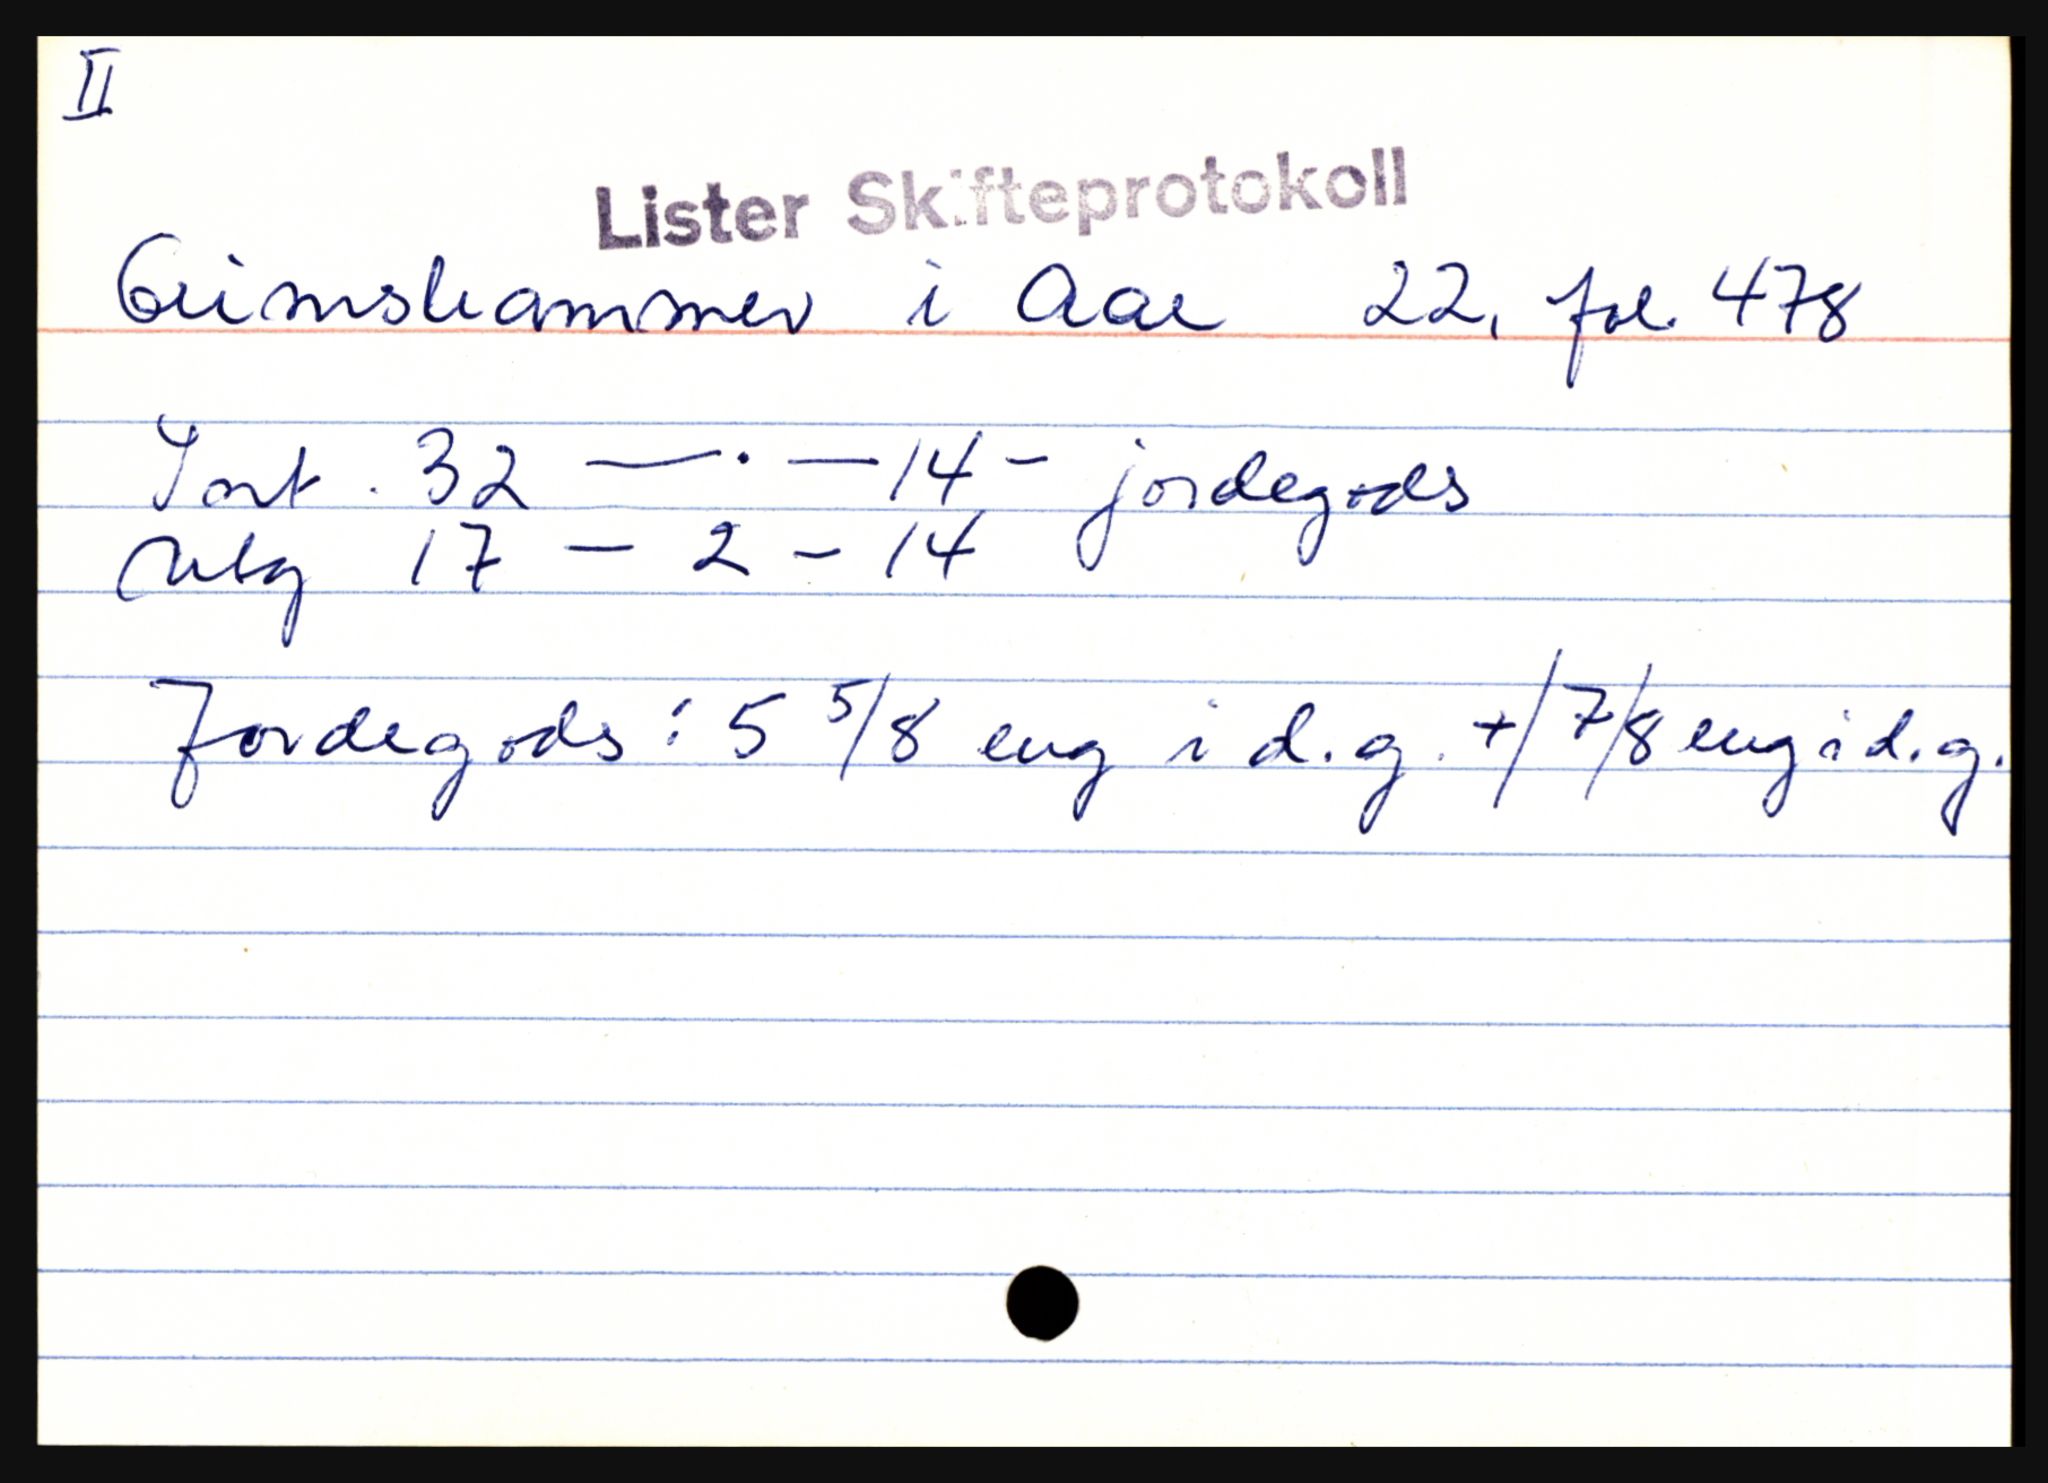 II
Lister Skifteprotokoll
Grimshammer i Aae 22, fol. 478
Jort. 32 —·— 14 - jordegods
Utg 17 — 2 - 14
Jordegods: 5 5/8 eng i d.g. +/ 7/8 eng i d.g.